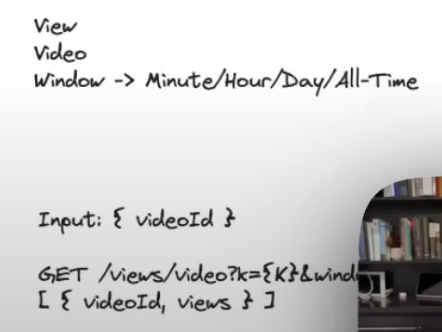 View
Video
Window -> Minute/Hour/Day/All-Time
Input: { videoId }
GET /views/video?k={K}&wind
[ { videoId, views } ]